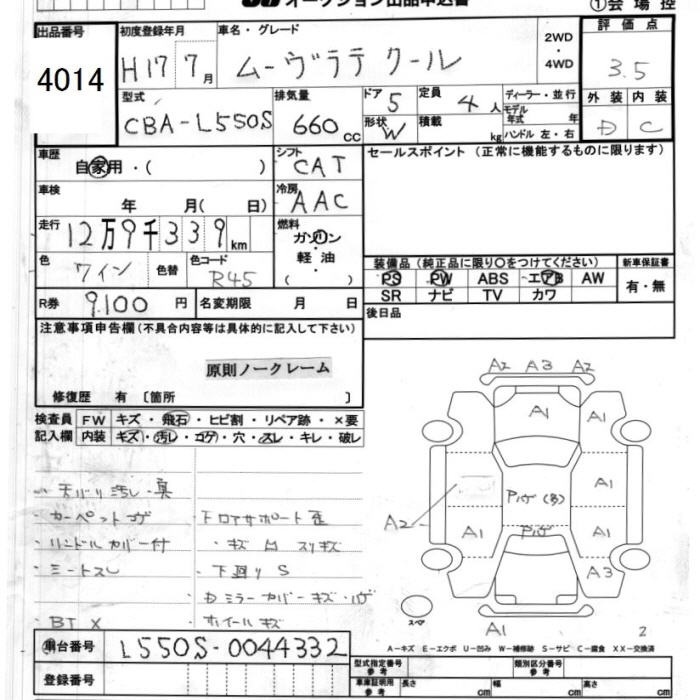 オークション出品申込書
①会場控
出品番号
4014
初度登録年月
H17 7月
車名・グレード
ムーヴラテ クール
2WD
・
4WD
評価点
3.5
型式
CBA-L550S
排気量
660 cc
ドア 5
定員 4 人
形状 W
積載 kg
ディーラー・並行
モデル年式 年
ハンドル 左・右
外装 内装
D C
車歴
自家用・( )
シフト
CAT
セールスポイント (正常に機能するものに限ります)
車検
年 月( 日)
冷房
AAC
走行
12万9千339km
燃料
ガソリン
・
軽油
( )
色
ワイン
色替
色コード
R45
装備品 (純正品に限り○をつけてください)
PS PW ABS エアB AW
SR ナビ TV カワ
新車保証書
有・無
R券 9,100 円
名変期限 月 日
後日品
注意事項申告欄 (不具合内容等は具体的に記入して下さい)
原則ノークレーム
修復歴 有 〔箇所 〕
検査員 FW キズ・飛石・ヒビ割・リペア跡・×要
記入欄 内装 キズ・汚レ・コゲ・穴・スレ・キレ・破レ
天バリ汚レ・臭
カーペットコゲ
ハンドルカバー付
シートスレ
BT X
ドロアサポート歪
キズ 凹 スリキズ
下回りS
Dミラーカバーキズ・ハゲ
ホイールキズ
A2 A3 A2
A1 A1
A1
A2 A1
A1
A3
A1
スペア
2
A-キズ E-エクボ U-凹み W-補修跡 S-サビ C-腐食 XX-交換済
車台番号 L550S-0044332
登録番号
型式指定番号 参考
類別区分番号 参考
車庫証明用 参考 長さ cm 幅 cm 高さ cm